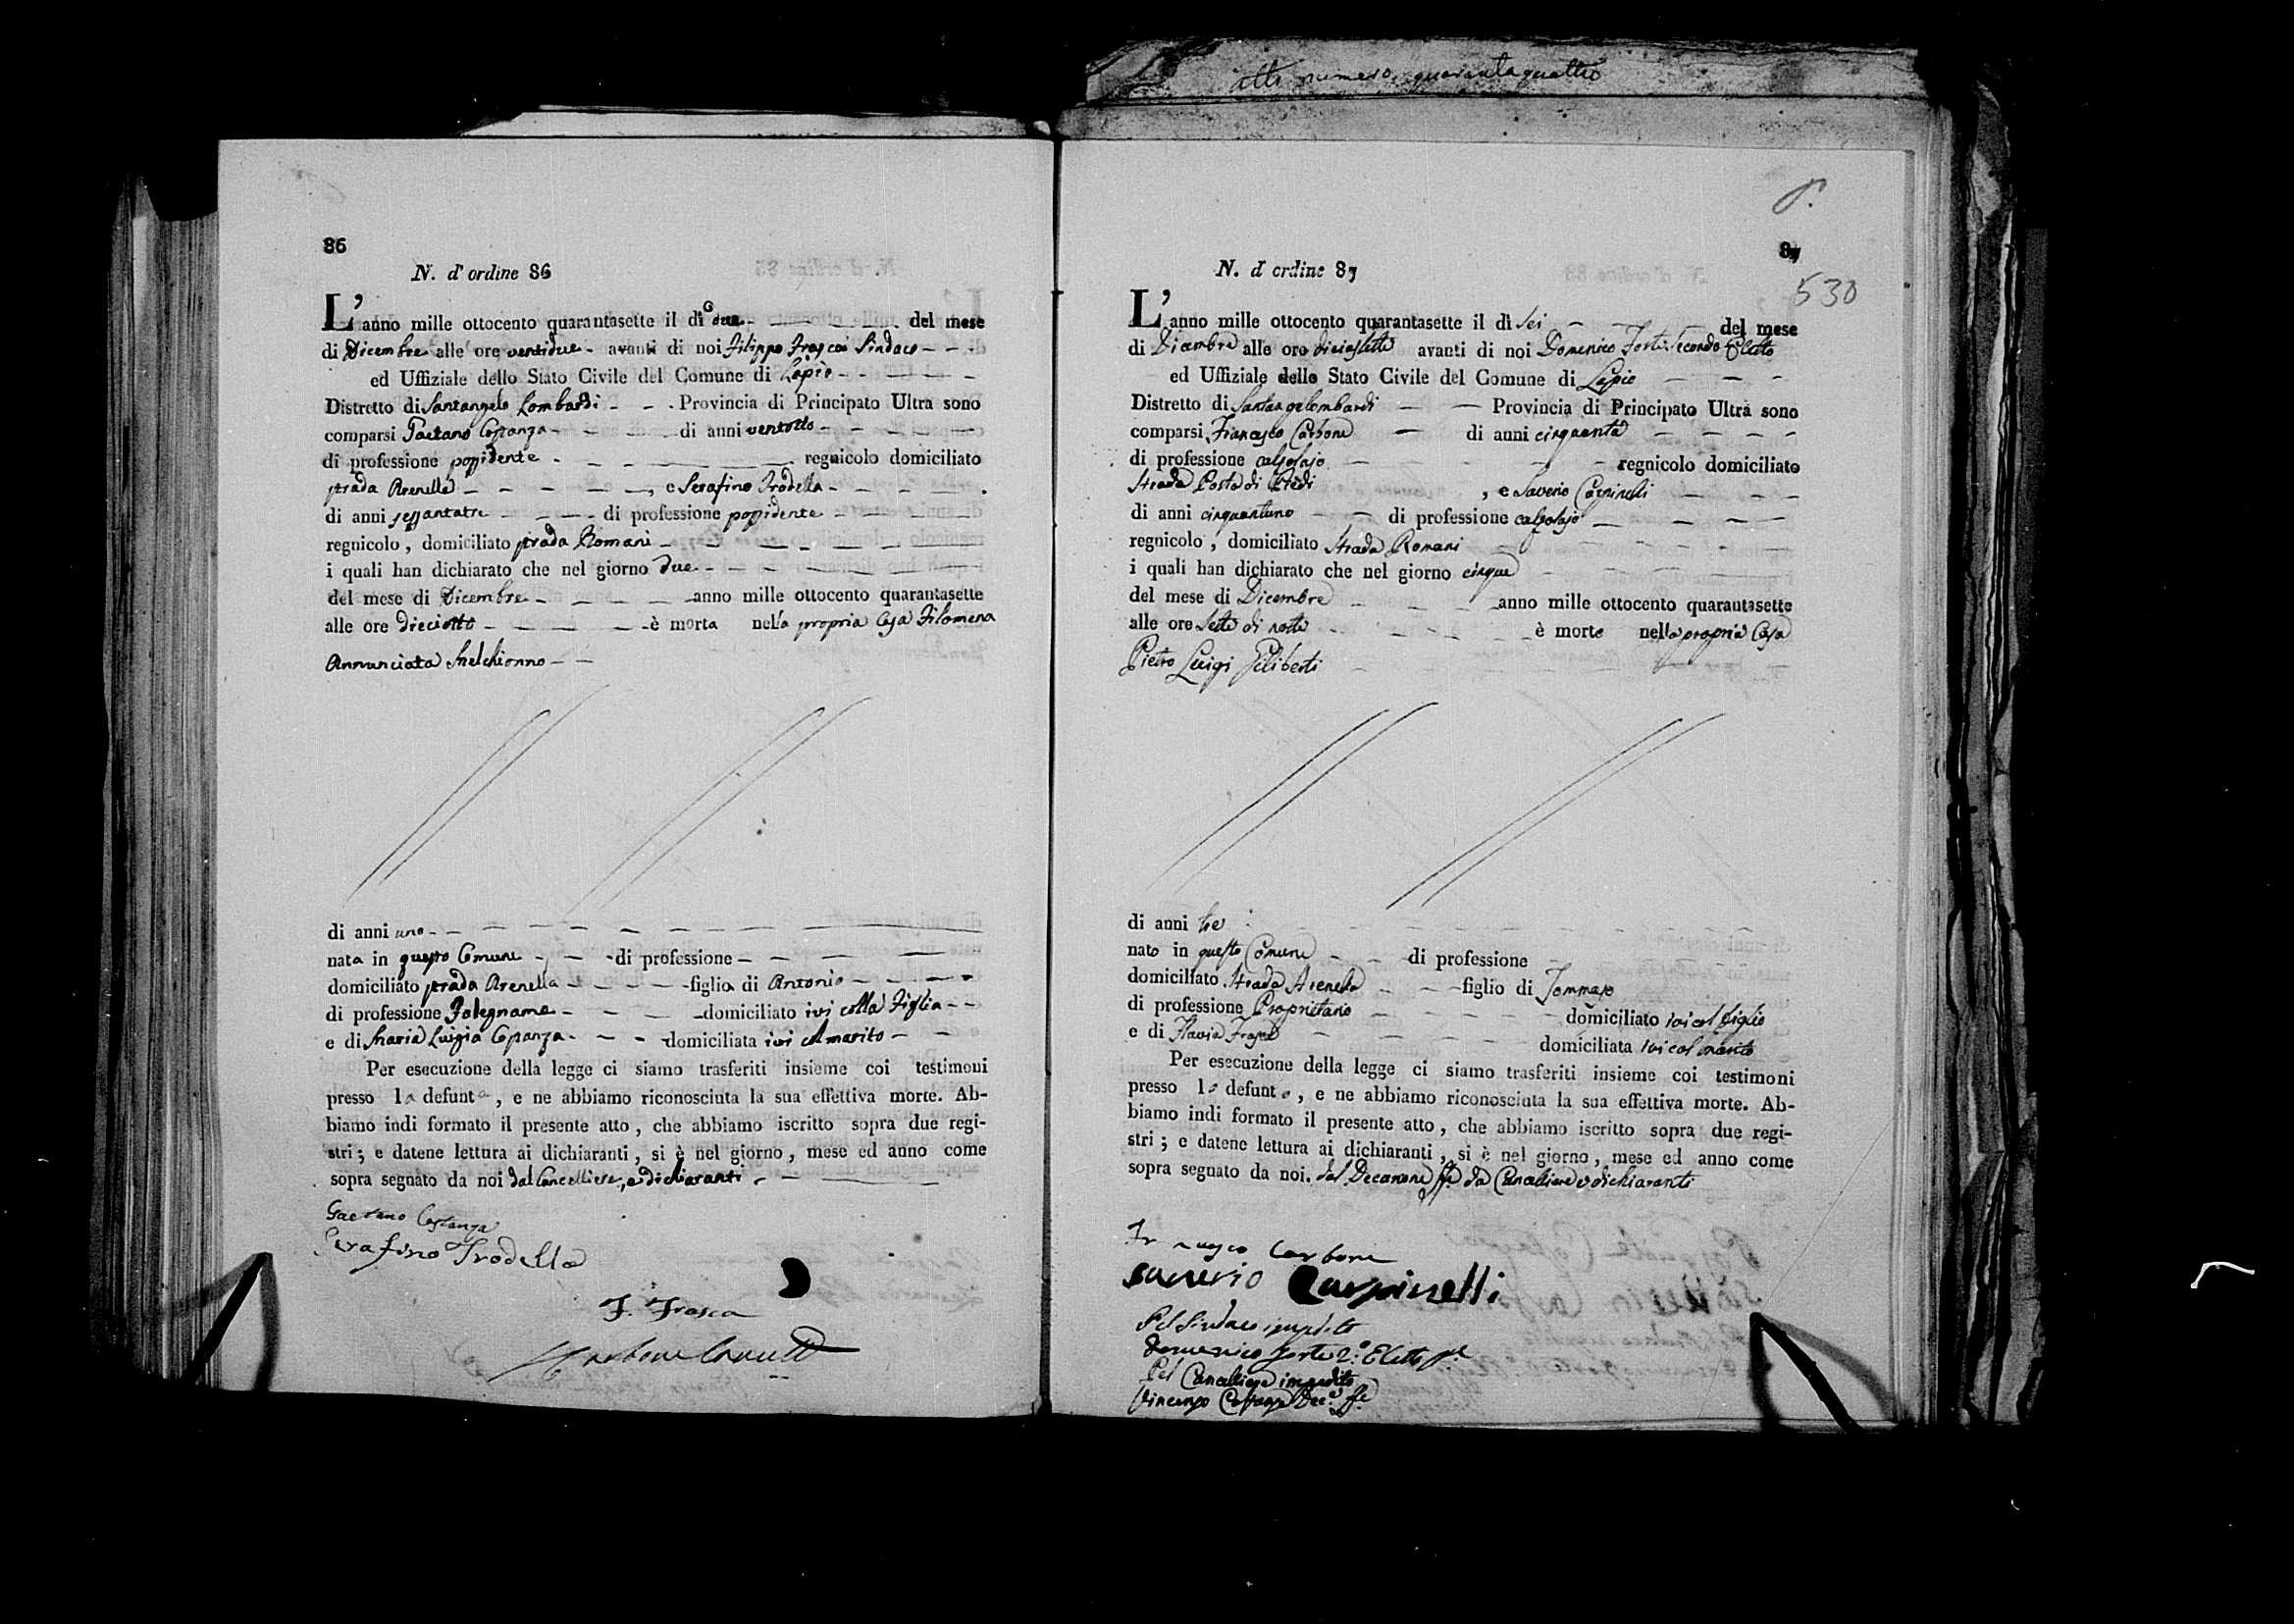 atto numero quarantaquattro
86
N. d'ordine 86
L'anno mille ottocento quarantasette il dì due del mese
di Dicembre alle ore ventidue avanti di noi Filippo Frasca Sindaco
ed Uffiziale dello Stato Civile del Comune di Lapio
Distretto di Santangelo Lombardi Provincia di Principato Ultra sono
comparsi Gaetano Costanza di anni ventotto
di professione possidente regnicolo domiciliato
strada Arenella , e Serafino Trodella
di anni sessantatre di professione possidente
regnicolo, domiciliato strada Romani
i quali han dichiarato che nel giorno due
del mese di Dicembre anno mille ottocento quarantasette
alle ore dieciotto è morta nella propria Casa Filomena
Annunciata Melchionno
di anni uno
nata in questo Comune di professione
domiciliato strada Arenella figlia di Antonio
di professione Falegname domiciliato ivi colla Figlia
e di Maria Luigia Costanza domiciliata ivi col marito
Per esecuzione della legge ci siamo trasferiti insieme coi testimoni
presso la defunta, e ne abbiamo riconosciuta la sua effettiva morte. Ab-
biamo indi formato il presente atto, che abbiamo iscritto sopra due regi-
stri; e datene lettura ai dichiaranti, si è nel giorno, mese ed anno come
sopra segnato da noi dal Cancelliere, e dichiaranti
Gaetano Costanza
Serafino Trodella
F. Frasca
Carbone
87
530
N. d'ordine 87
L'anno mille ottocento quarantasette il dì sei del mese
di Dicembre alle ore diciasette avanti di noi Domenico Forte Secondo Eletto
ed Uffiziale dello Stato Civile del Comune di Lapio
Distretto di Santangelombardi Provincia di Principato Ultra sono
comparsi Francesco Carbone di anni cinquanta
di professione calzolajo regnicolo domiciliato
Strada Posta di Piedi , e Saverio Carpinelli
di anni cinquantuno di professione calzolajo
regnicolo, domiciliato Strada Romani
i quali han dichiarato che nel giorno cinque
del mese di Dicembre anno mille ottocento quarantasette
alle ore sette di notte è morto nella propria Casa
Pietro Luigi Filiberti
di anni tre
nato in questo Comune di professione
domiciliato Strada Arenella figlio di Tommaso
di professione Proprietario domiciliato ivi col figlio
e di Flavia Frasca domiciliata ivi col marito
Per esecuzione della legge ci siamo trasferiti insieme coi testimoni
presso lo defunto, e ne abbiamo riconosciuta la sua effettiva morte. Ab-
biamo indi formato il presente atto, che abbiamo iscritto sopra due regi-
stri; e datene lettura ai dichiaranti, si è nel giorno, mese ed anno come
sopra segnato da noi. dal Decurione ff. da Cancelliere e dichiaranti
Francesco Carbone
Saverio Carpinelli
Pel Sindaco impedito
Domenico Forte 2.° Eletto
Pel Cancelliere impedito
Vincenzo Costanza Dec.e ff.